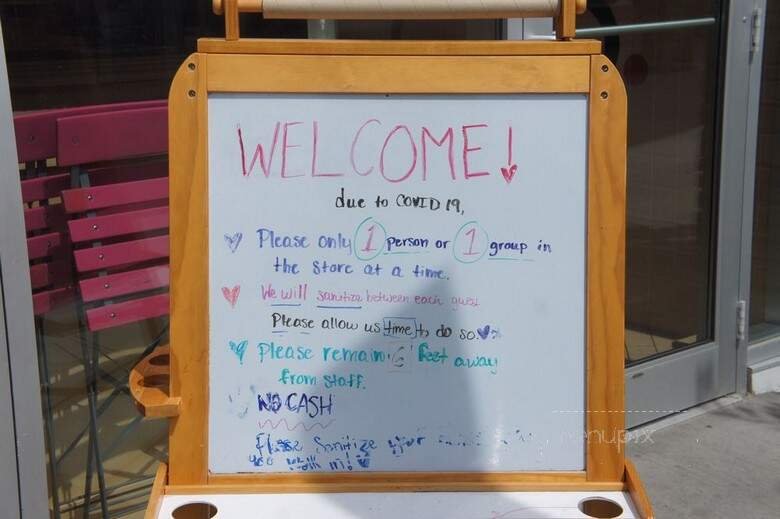 WELCOME!
due to COVID 19,
Please only 1 person or 1 group in
the store at a time.
We will sanitize between each guest
Please allow us time to do so.
Please remain 6 feet away
from staff.
NO CASH
Please Sanitize your
you walk in!
menupix